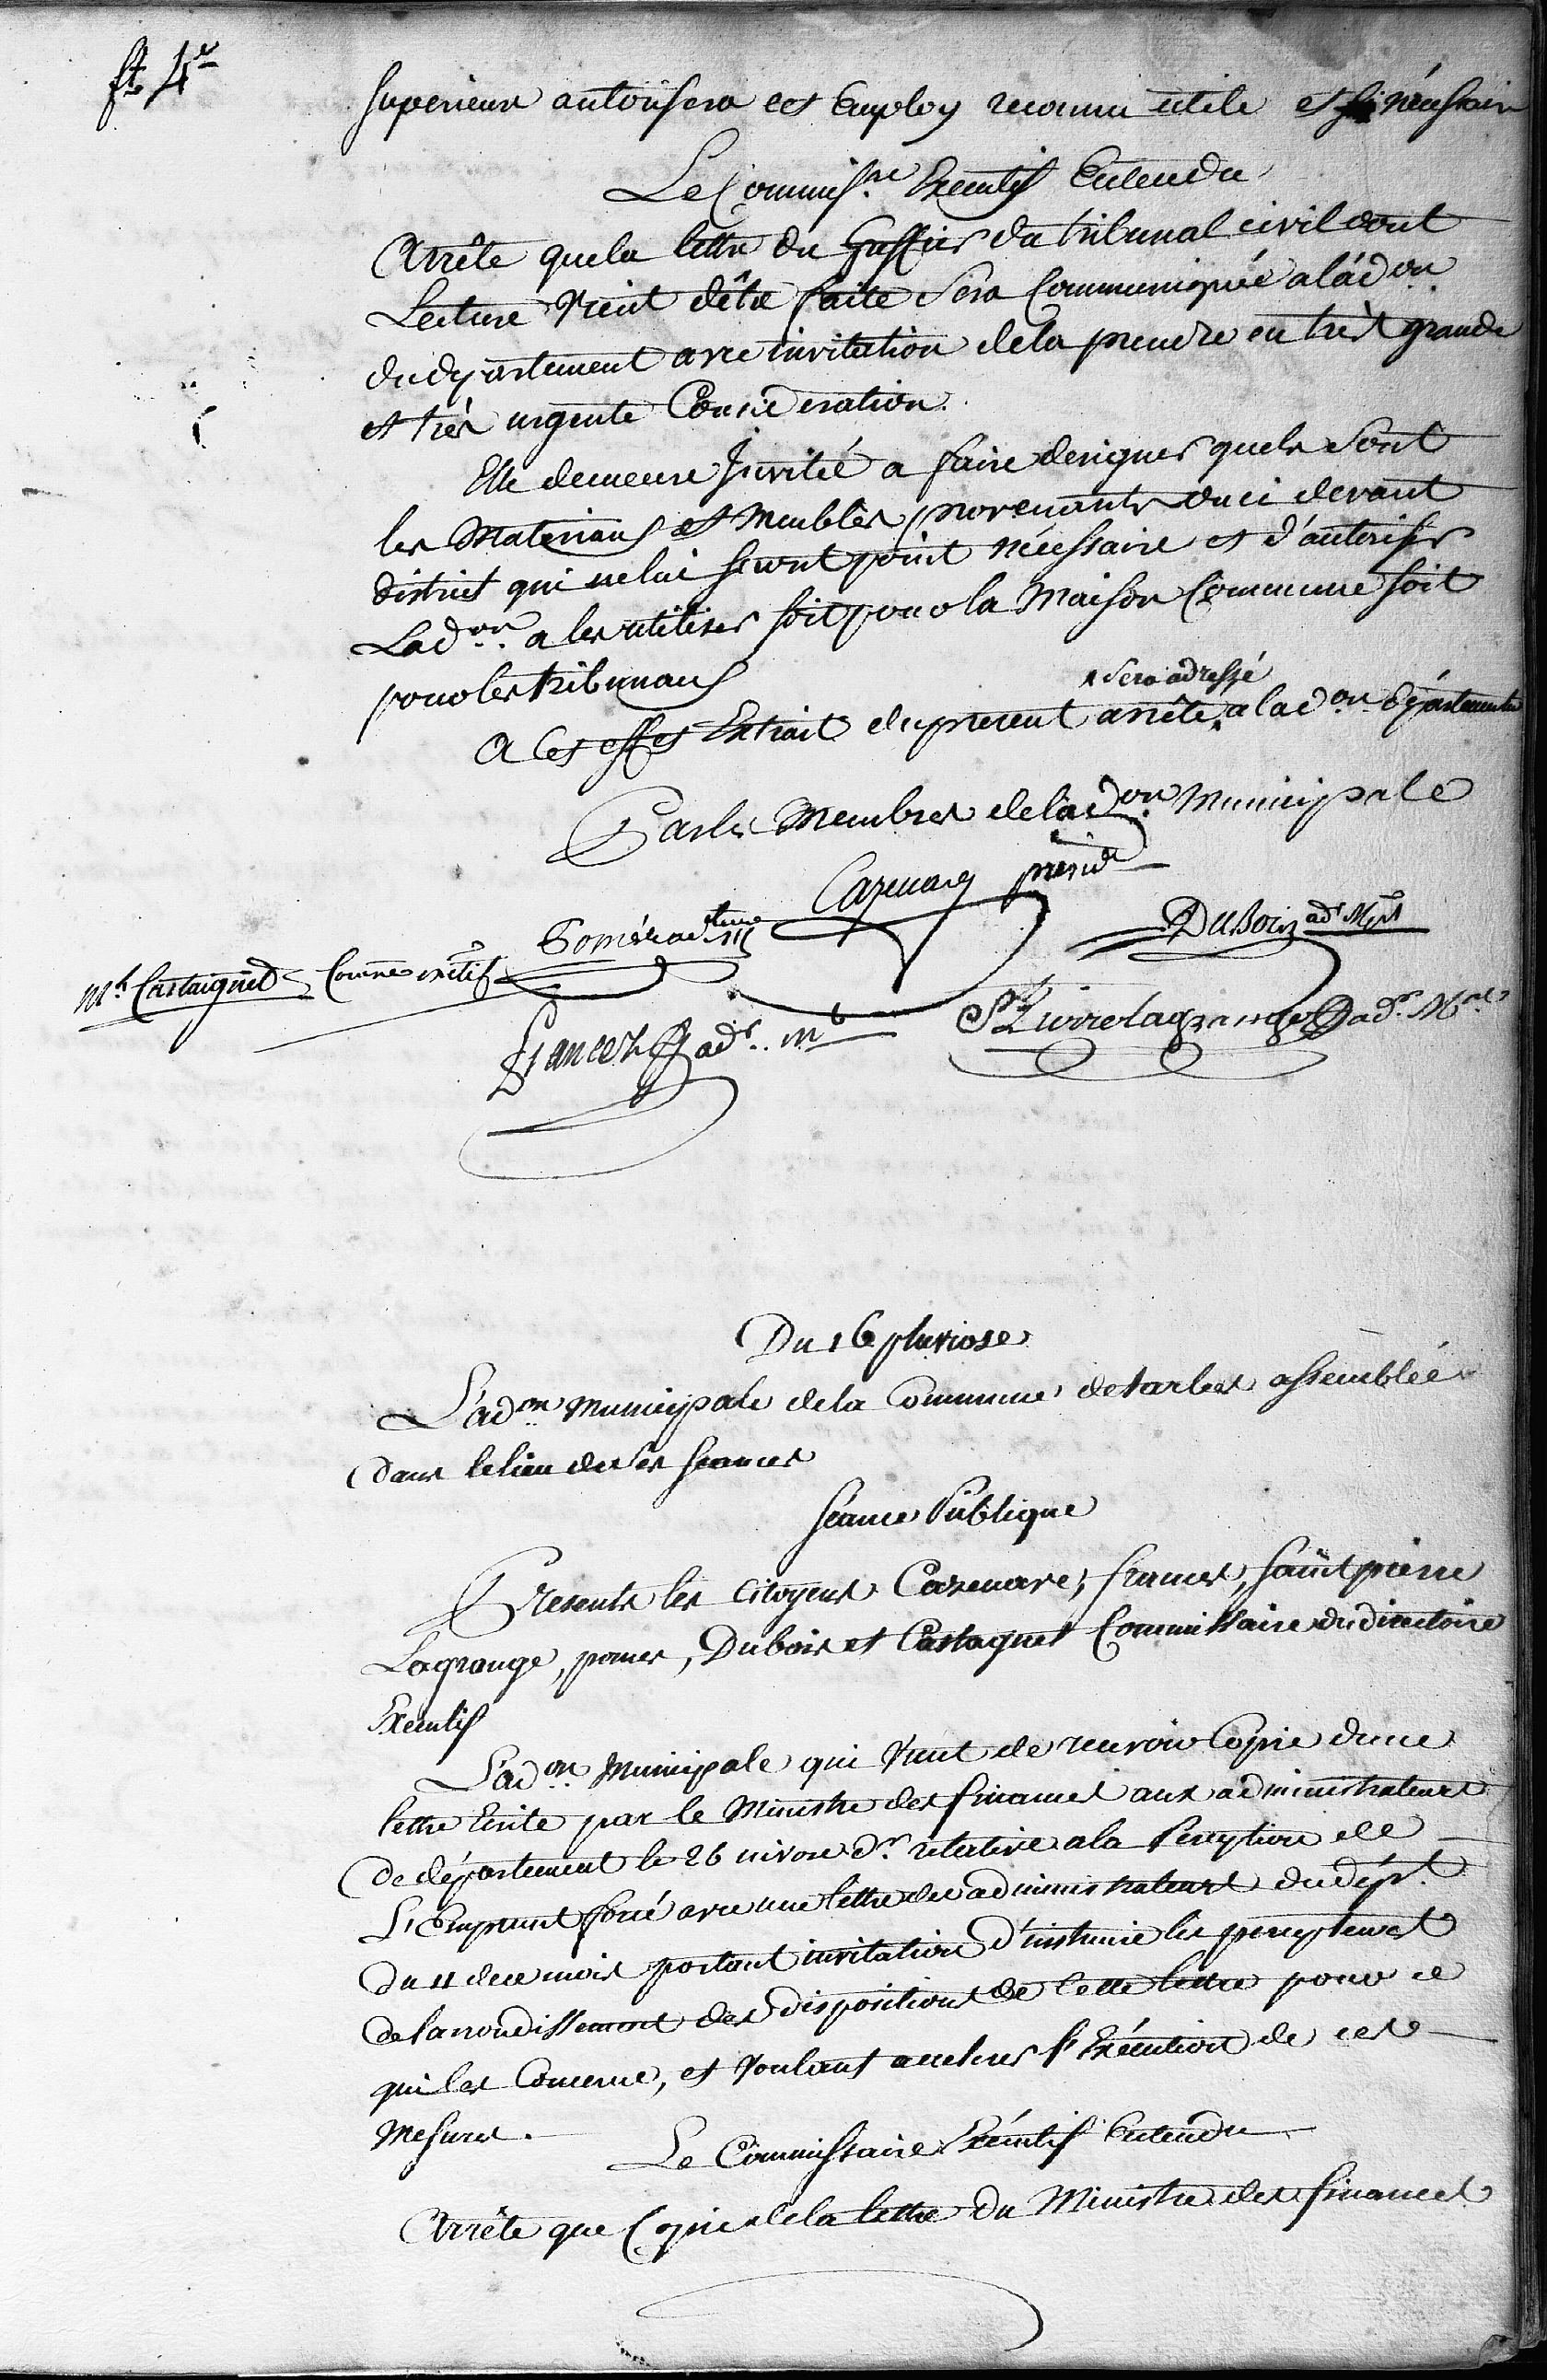 fo 4e
superieure autorisera cet Employ reconnu utile et si nécessaire
Le Commissre Executif Entendu
Arrête que la lettre du Greffier du tribunal civil dont
Lecture vient dêtre faite Sera Communiquée a l'adon
du departement avec invitation de la prendre en très grande
et très urgente Consideration.
Elle demeure Invitée a faire designer quels Sont
les Materiaux et Meubles provenants du ci devant
district qui ne lui seront point nécessaire et d'autoriser
Ladon a les utiliser soit pour la Maison Commune soit
pour les tribunaux
Sera adressé
A Cet effet Extrait du present arrêté a ladon Departementale
Par les Membres de ladon Municipale
Cazenave presidt
Pomés DuBois adr Mpl
Mh Castaignet Commre exetif
Frances adr ml St Pierre lagrange adr Mal
Du 16 pluviose
L'adon Municipale de la Commune de tarbes assemblée
dans le lieu de ses seances
Séance Publique
Presents les Citoyens Cazenave, frances, saint pierre
Lagrange, pomes, Dubois et Castagnet Commissaire du directoire
Executif
L'adon Municipale qui vient de recevoir Copie d'une
lettre Ecrite par le Ministre des finances aux administrateurs
de département le 26 nivose dr relative a la Perception de
L'Emprunt forcé avec une lettre des administrateurs du dépt
du 11 de ce mois portant invitation d'instruire les percepteurs
de larrondissement des dispositions de Cette lettre pour ce
qui les Concerne, et voulant accelerer l'Exécution de ces
Mesures.
Le Commissaire Exécutif Entendu
Arrête que Copie de la lettre du Ministre des finances